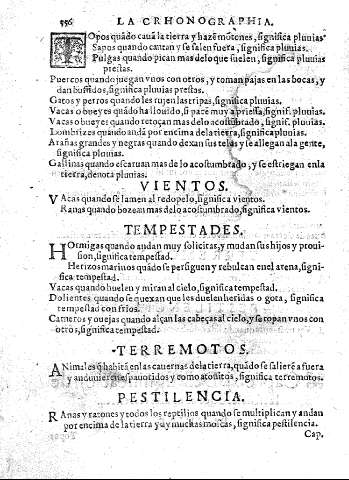 556 LA CRHONOGRAPHIA.
TOpos quãdo cauã la tierra y hazẽ mõtones, significa pluuias
Sapos quando cantan y se salen fuera, significa pluuias.
Pulgas quando pican mas de lo que suelen, significa pluuias
prestas.
Puercos quando juegan vnos con otros, y toman pajas en las bocas, y
dan bufidos, significa pluuias prestas.
Gatos y perros quando les rujen las tripas, significa pluuias.
Vacas o bueyes quãdo ha llouido, si pacẽ muy a priessa, signif. pluuias.
Vacas o bueyes quando retoçan mas de lo acostumbrado, signif. pluuias.
Lombrizes quando andã por encima de la tierra, significa pluuias.
Arañas grandes y negras quando dexan sus telas y se allegan a la gente,
significa pluuias.
Gallinas quando escaruan mas de lo acostumbrado, y se estriegan en la
tierra, denota pluuias.
VIENTOS.
VAcas quando se lamen al redopelo, significa vientos.
Ranas quando bozean mas de lo acostumbrado, significa vientos.
TEMPESTADES.
HOrmigas quando andan muy solicitas, y mudan sus hijos y proui-
sion, significa tempestad.
Herizos marinos quãdo se persiguen y rebulcan en el arena, signi-
fica tempestad.
Vacas quando huelen y miran al cielo, significa tempestad.
Dolientes quando se quexan que les duelen heridas o gota, significa
tempestad con frios.
Carneros y ouejas quando alçan las cabeças al cielo, y se topan vnos con
otros, significa tempestad.
TERREMOTOS.
ANimales q̃ habitã en las cauernas de la tierra, quãdo se salierẽ a fuera
y anduuierẽ espauoridos y como atonitos, significa terremotos.
PESTILENCIA.
RAnas y ratones y todos los reptilios quando se multiplican y andan
por encima de la tierra y uy muchas moscas, significa pestilencia.
Cap.